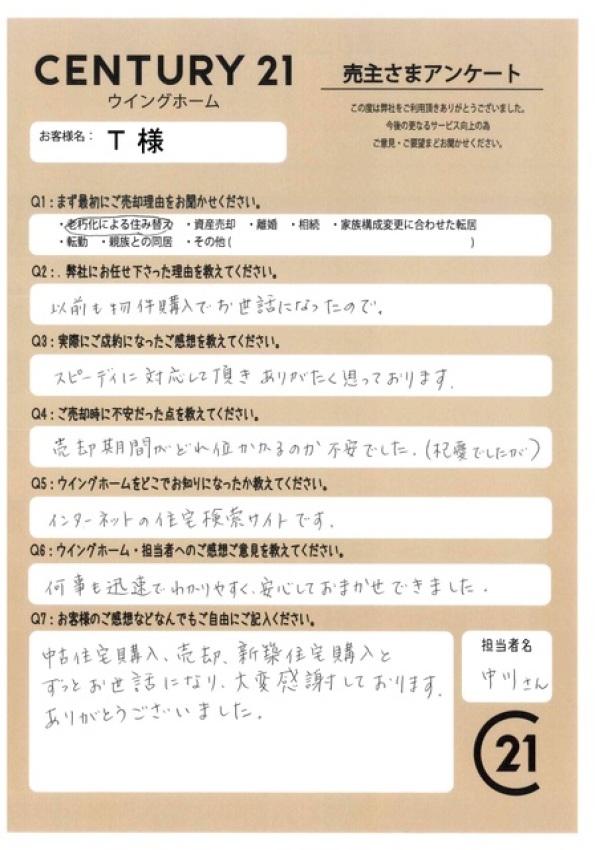 CENTURY 21
ウイングホーム
売主さまアンケート
この度は弊社をご利用頂きありがとうございました。
今後の更なるサービス向上の為
ご意見・ご要望まどお聞かせください。
お客様名： T 様
Q1：まず最初にご売却理由をお聞かせください。
・老朽化による住み替え ・資産売却 ・離婚 ・相続 ・家族構成変更に合わせた転居
・転勤 ・親族との同居 ・その他（ ）
Q2：. 弊社にお任せ下さった理由を教えてください。
以前も物件購入でお世話になったので。
Q3：実際にご成約になったご感想を教えてください。
スピーディに対応して頂きありがたく思っております。
Q4：ご売却時に不安だった点を教えてください。
売却期間がどれ位かかるのか不安でした。（杞憂でしたが）
Q5：ウイングホームをどこでお知りになったか教えてください。
インターネットの住宅検索サイトです。
Q6：ウイングホーム・担当者へのご感想ご意見を教えてください。
何事も迅速でわかりやすく、安心しておまかせできました。
Q7：お客様のご感想などなんでもご自由にご記入ください。
中古住宅購入、売却、新築住宅購入と
ずっとお世話になり、大変感謝しております。
ありがとうございました。
担当者名
中川さん
C21